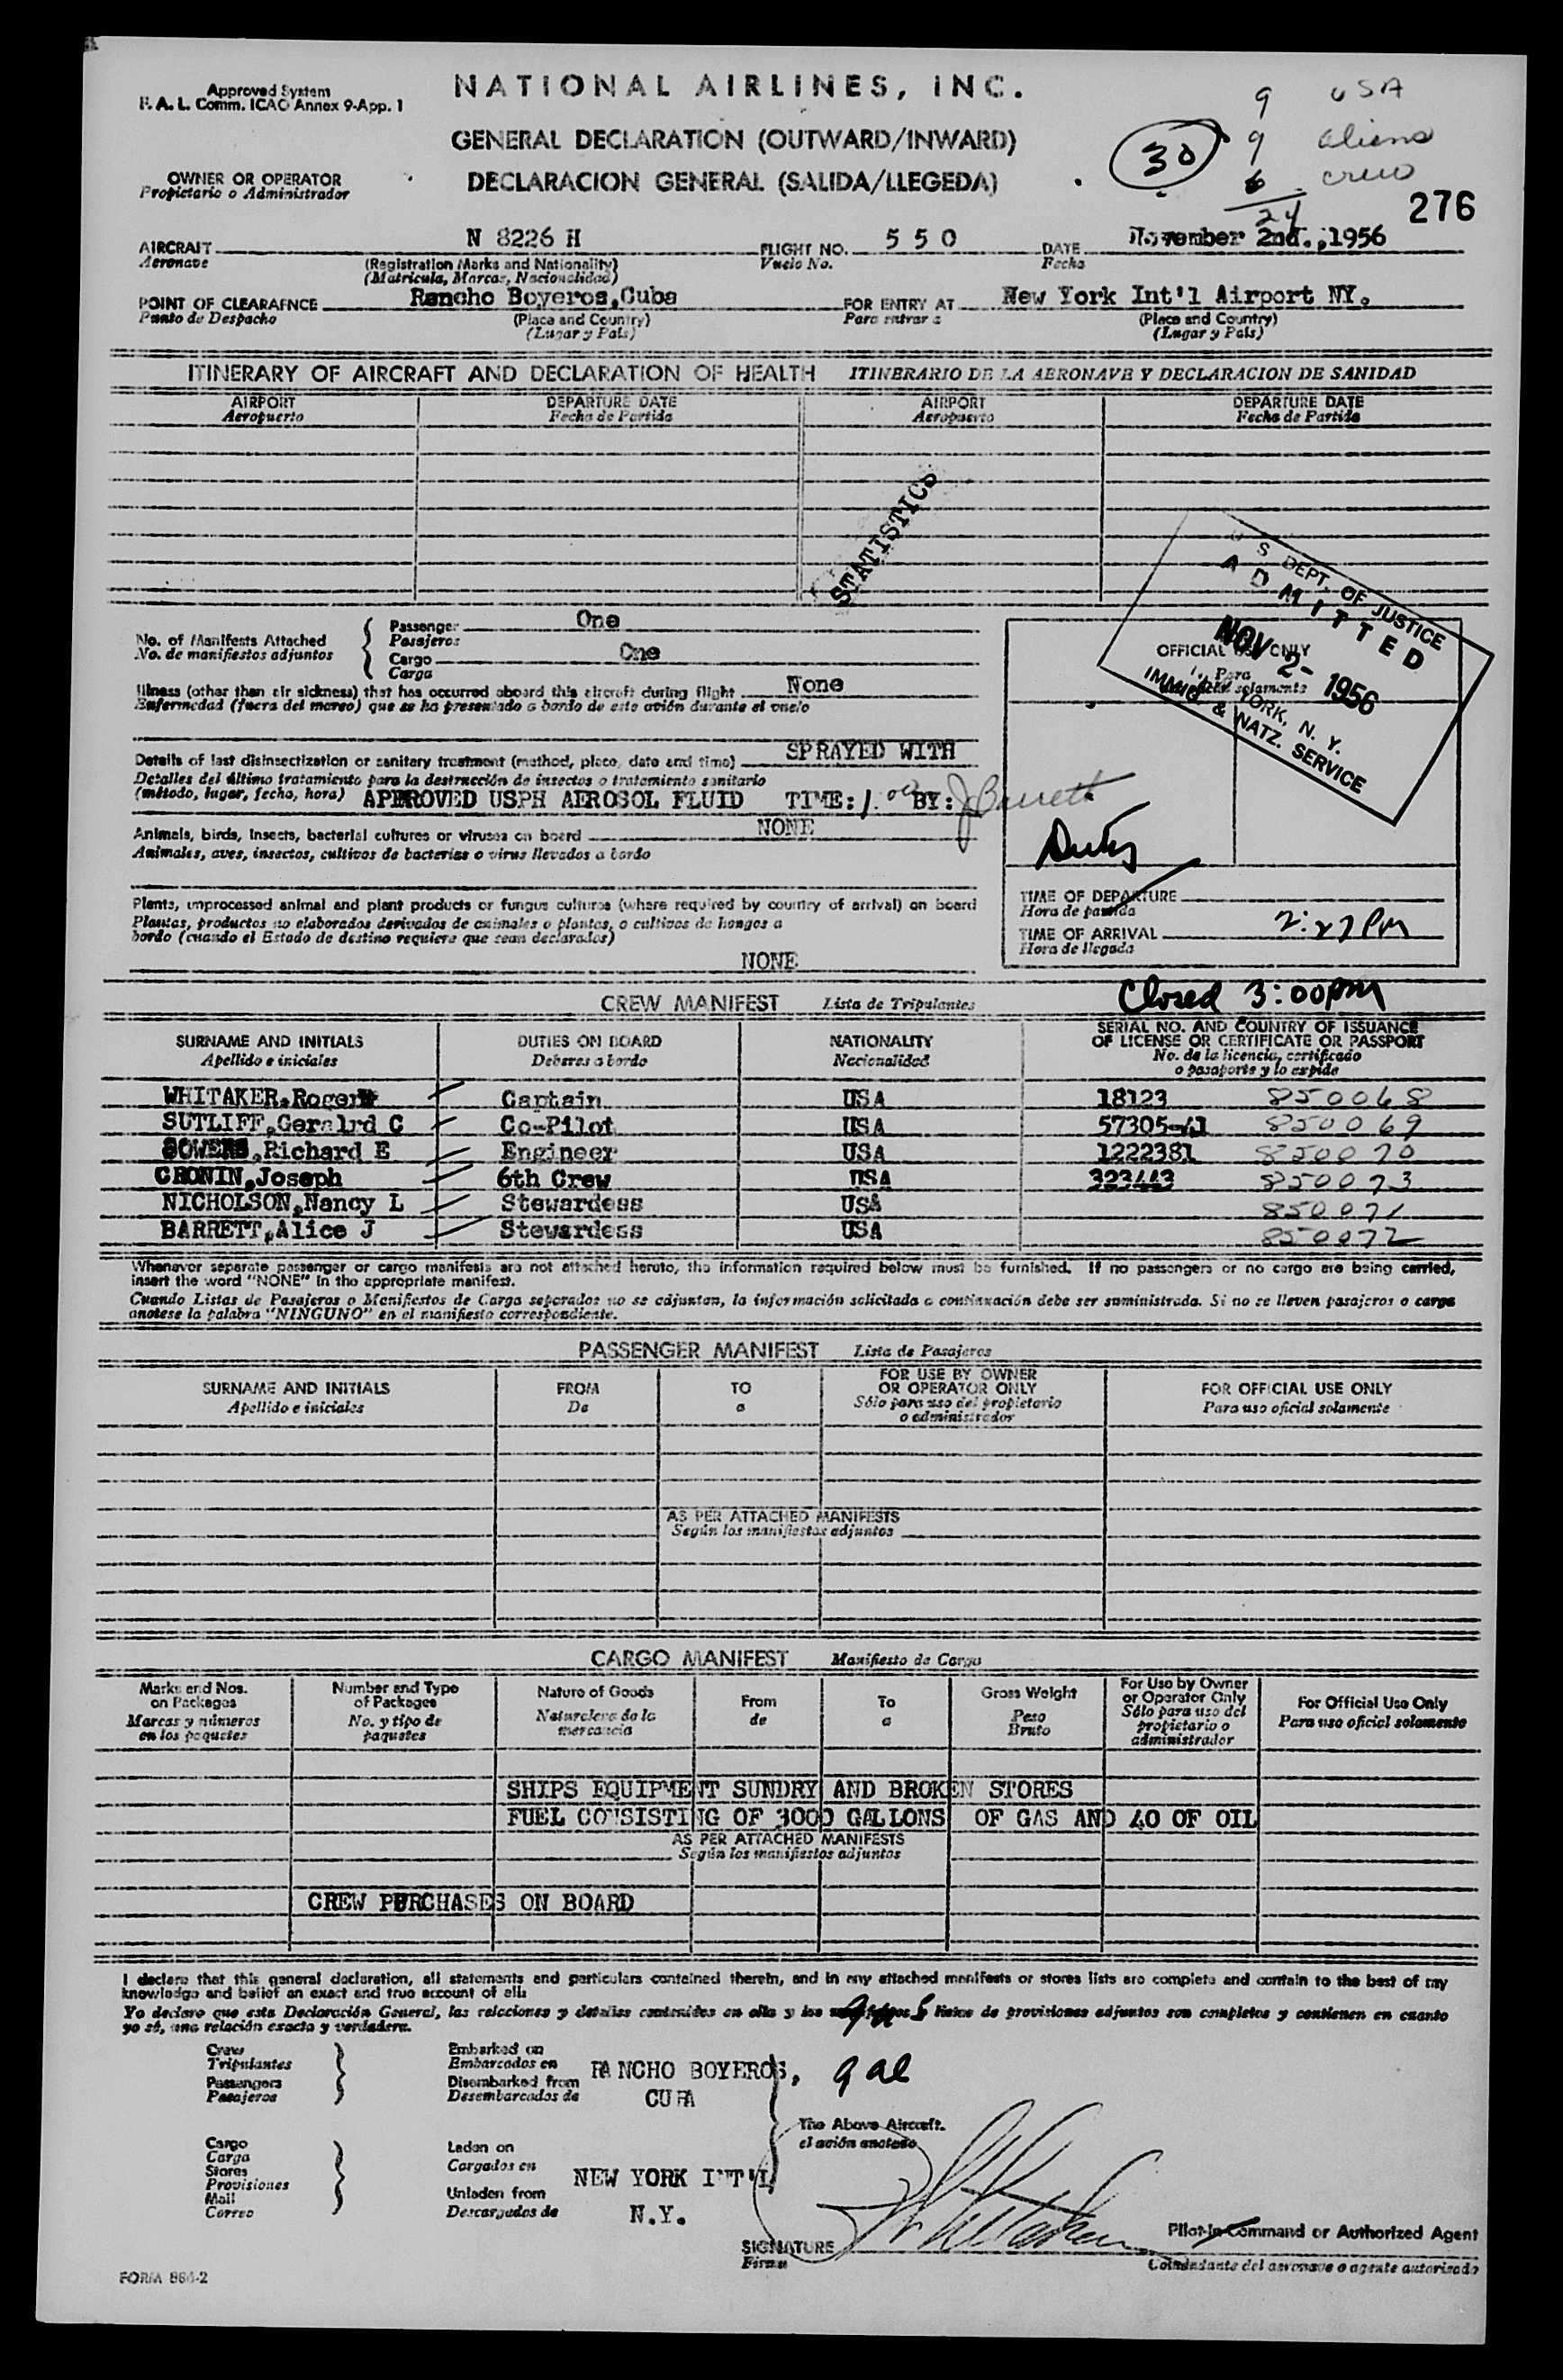 Approved System
F. A. L. Comm. ICAO Annex 9-App. 1
NATIONAL AIRLINES, INC.
GENERAL DECLARATION (OUTWARD/INWARD)
DECLARACION GENERAL (SALIDA/LLEGEDA)
OWNER OR OPERATOR
Propietario o Administrador
30
9 USA
9 aliens
6 crew
24
276
AIRCRAFT N 8226 H FLIGHT NO. 550 DATE November 2nd.,1956
Aeronave (Registration Marks and Nationality) Vuelo No. Fecha
(Matricula, Marcas, Nacionalidad)
POINT OF CLEARAFNCE Rancho Boyeros,Cuba FOR ENTRY AT New York Int'l Airport NY.
Punto de Despacho (Place and Country) Para entrar a (Place and Country)
(Lugar y País) (Lugar y País)
ITINERARY OF AIRCRAFT AND DECLARATION OF HEALTH ITINERARIO DE LA AERONAVE Y DECLARACION DE SANIDAD
AIRPORT DEPARTURE DATE AIRPORT DEPARTURE DATE
Aeropuerto Fecha de Partida Aeropuerto Fecha de Partida
STATISTICS
U S DEPT. OF JUSTICE
ADMITTED
NOV 2- 1956
NEW YORK, N. Y.
IMMIG. & NATZ. SERVICE
No. of Manifests Attached
No. de manifiestos adjuntos
Passenger One
Pasajeros
Cargo One
Carga
OFFICIAL USE ONLY
Para
solamente
Illness (other than air sickness) that has occurred aboard this aircraft during flight None
Enfermedad (fuera del mareo) que se ha presentado a bordo de este avión durante el vuelo
Details of last disinsectization or sanitary treatment (method, place, date and time) SPRAYED WITH
Detalles del último tratamiento para la destrucción de insectos o tratamiento sanitario
(método, lugar, fecha, hora) APPROVED USPH AEROSOL FLUID TIME: 1.00 BY: J Barrett
Animals, birds, insects, bacterial cultures or viruses on board NONE
Animales, aves, insectos, cultivos de bacterias o virus llevados a bordo
Plants, unprocessed animal and plant products or fungus cultures (where required by country of arrival) on board
Plantas, productos no elaborados derivados de animales o plantas, o cultivos de hongos a
bordo (cuando el Estado de destino requiera que sean declarados)
NONE
TIME OF DEPARTURE
Hora de partida
TIME OF ARRIVAL 2:27 PM
Hora de llegada
Closed 3:00pm
CREW MANIFEST Lista de Tripulantes
SURNAME AND INITIALS DUTIES ON BOARD NATIONALITY SERIAL NO. AND COUNTRY OF ISSUANCE
OF LICENSE OR CERTIFICATE OR PASSPORT
Apellido e iniciales Deberes a bordo Nacionalidad No. de la licencia, certificado
o pasaporte y lo expide
WHITAKER,Roger Captain USA 18123 850068
SUTLIFF,Geralrd C Co-Pilot USA 57305-41 850069
SOWERS,Richard E Engineer USA 1222381 850070
CRONIN,Joseph 6th Crew USA 323443 850073
NICHOLSON,Nancy L Stewardess USA 850071
BARRETT,Alice J Stewardess USA 850072
Whenever separate passenger or cargo manifests are not attached hereto, the information required below must be furnished. If no passengers or no cargo are being carried,
insert the word "NONE" in the appropriate manifest.
Cuando Listas de Pasajeros o Manifiestos de Carga separados no se adjuntan, la información solicitada a continuación debe ser suministrada. Si no se lleven pasajeros o carga
anotese la palabra "NINGUNO" en el manifiesto correspondiente.
PASSENGER MANIFEST Lista de Pasajeros
SURNAME AND INITIALS FROM TO FOR USE BY OWNER
OR OPERATOR ONLY FOR OFFICIAL USE ONLY
Apellido e iniciales De a Sólo para uso del propietario
o administrador Para uso oficial solamente
AS PER ATTACHED MANIFESTS
Según los manifiestos adjuntos
CARGO MANIFEST Manifiesto de Carga
Marks and Nos.
on Packages
Marcas y números
en los paquetes
Number and Type
of Packages
No. y tipo de
paquetes
Nature of Goods
Naturaleza de la
mercancia
From
de
To
a
Gross Weight
Peso
Bruto
For Use by Owner
or Operator Only
Sólo para uso del
propietario o
administrador
For Official Use Only
Para uso oficial solamente
SHIPS EQUIPMENT SUNDRY AND BROKEN STORES
FUEL CONSISTING OF 3000 GALLONS OF GAS AND 40 OF OIL
AS PER ATTACHED MANIFESTS
Según los manifiestos adjuntos
CREW PURCHASES ON BOARD
I declare that this general declaration, all statements and particulars contained therein, and in any attached manifests or stores lists are complete and contain to the best of my
knowledge and belief an exact and true account of all:
Yo declaro que esta Declaración General, las relaciones y detalles contenidos en ella y los manifiestos o listas de provisiones adjuntos son completos y contienen en cuanto
yo sé, una relación exacta y verdadera.
Crew
Tripulantes
Passengers
Pasajeros
Embarked on
Embarcados en
Disembarked from
Desembarcados de
RANCHO BOYEROS,
CUBA
9 al
The Above Aircraft.
el avión anotado
Cargo
Carga
Stores
Provisiones
Mail
Correo
Laden on
Cargados en
Unladen from
Descargados de
NEW YORK INT'L
N.Y.
SIGNATURE
Firma
Pilot-in-Command or Authorized Agent
Comandante del aeronave o agente autorizado
FORM 864-2